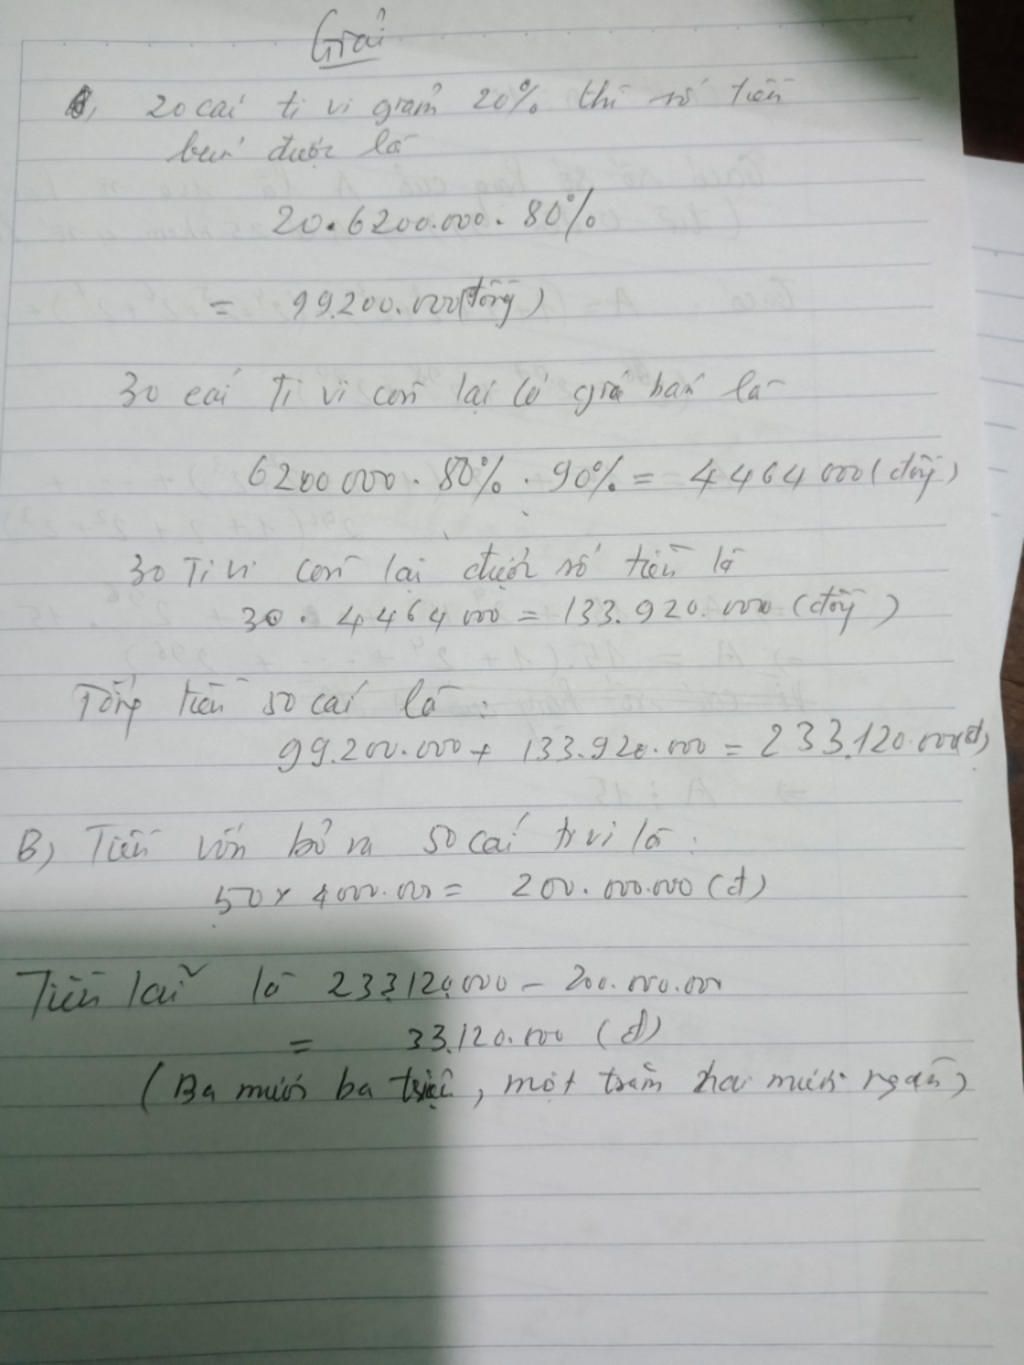 Giải
a, 20 cái ti vi giảm 20% thì số tiền
bán được là
20.6200.000.80%
= 99.200.000(đồng)
30 cái Ti vi còn lại có giá bán là
6200000.80%.90% = 4464000(đồng)
30 Ti vi còn lại được số tiền là
30.4464000 = 133.920.000 (đồng)
Tổng tiền 50 cái là:
99.200.000 + 133.920.000 = 233.120.000(đ)
B) Tiền vốn bỏ ra 50 cái ti vi là:
50 x 4000.000 = 200.000.000 (đ)
Tiền lãi là 233.120.000 - 200.000.000
= 33.120.000 (đ)
(Ba mươi ba triệu, một trăm hai mươi ngàn)